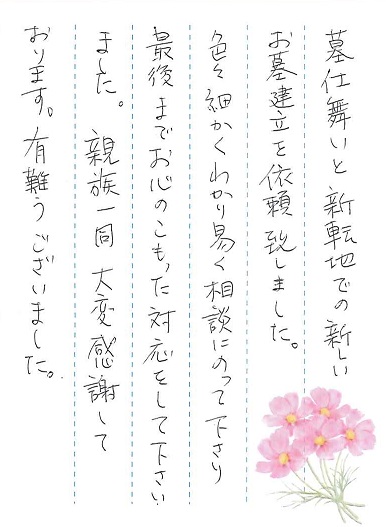 墓仕舞いと新転地での新しい
お墓建立を依頼致しました。
色々細かくわかり易く相談にのって下さり
最後までお心のこもった対応をして下さい
ました。親族一同大変感謝して
おります。有難うございました。